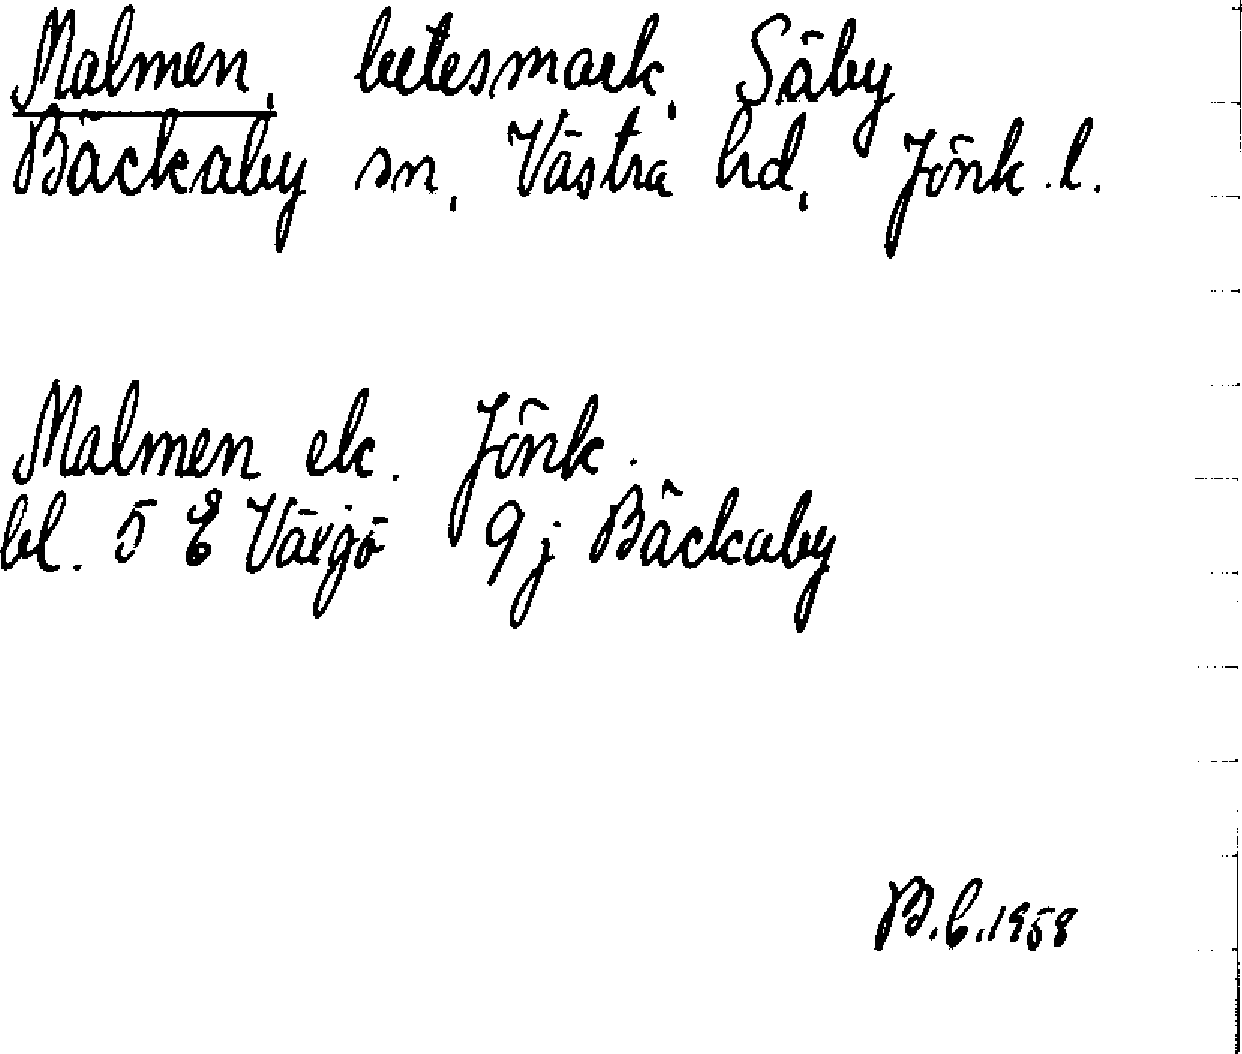 Malmen, betesmark, Säby
Bäckaby sn, Västra hd, Jönk. l.
Malmen ek. Jönk.
bl. 5 E Växjö 9 j Bäckaby
B.C. 1958